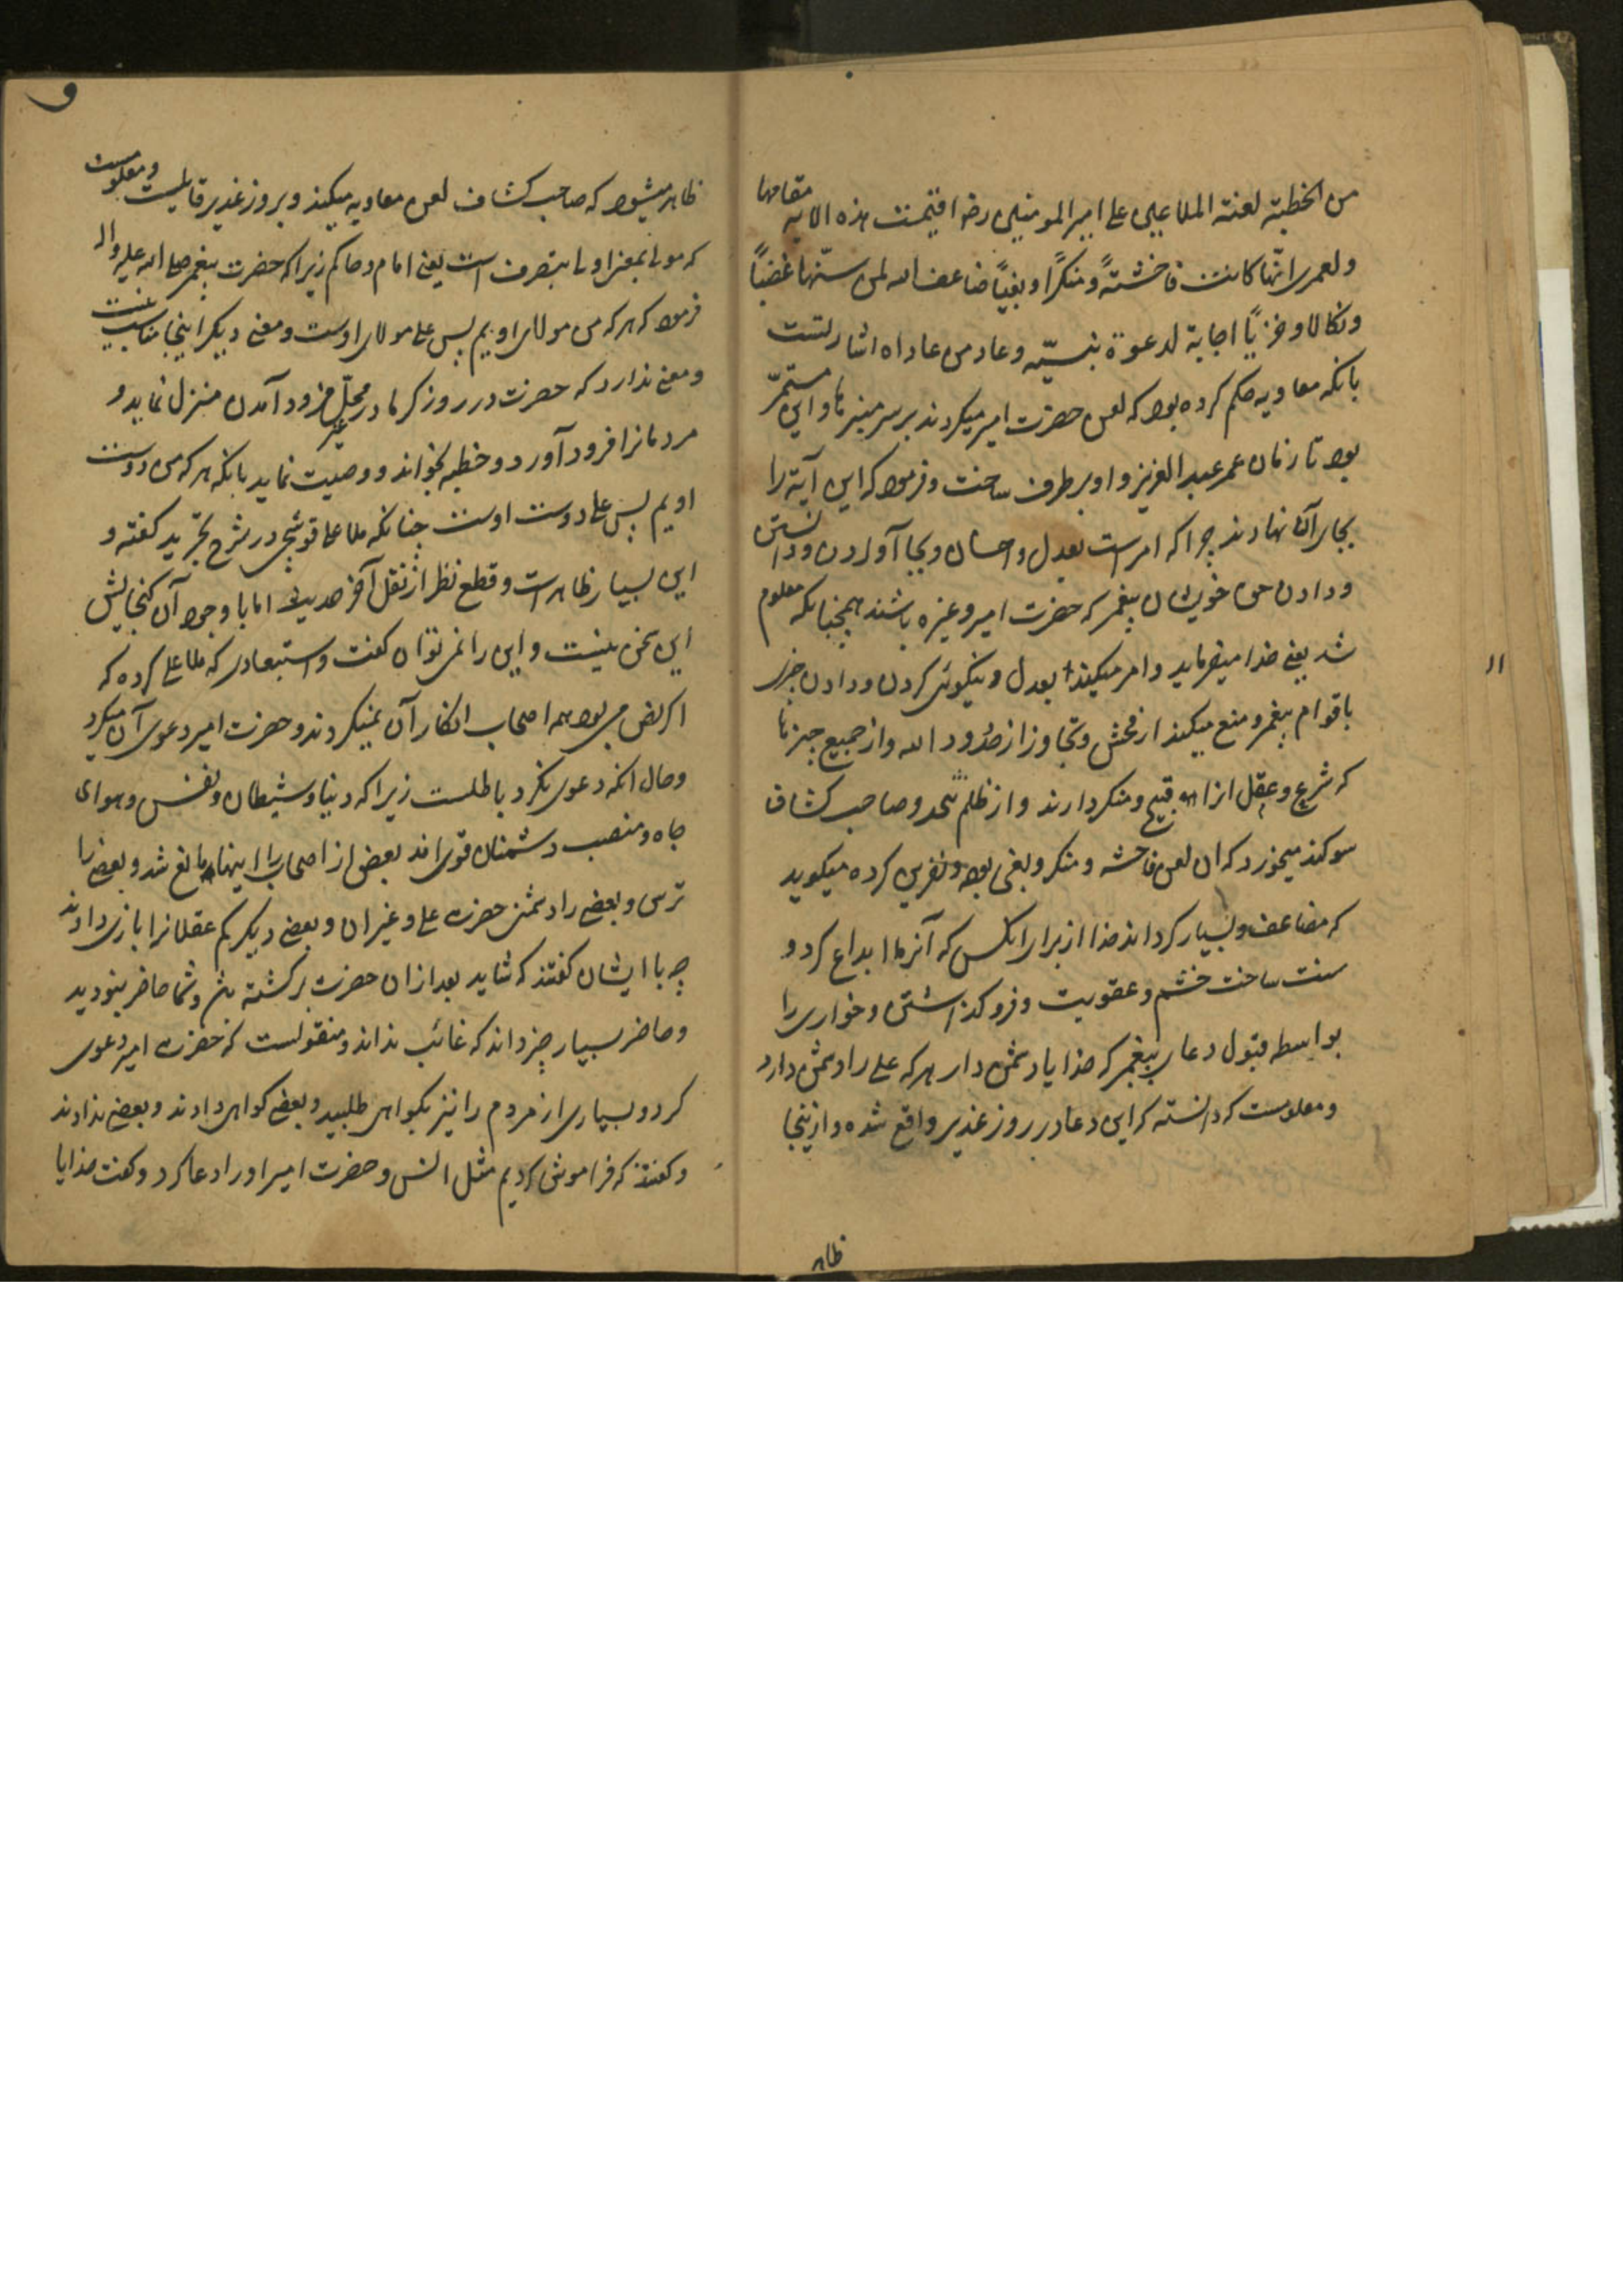 من الخطبة لعنة الملاعين على امير المومنين رضـ اقيمت هذه الايه مقامها
ولعمرى انّها كانت فاحشتهً ومنكرًا وبغيًا ضاعف الله لمن سنّها غضبًا
ونكالا وخزيًا اجابة لدعوة نبيّه وعاد من عاداه اشارتست
بانكه معاويه حكم كرده بود كه لعن حضرت امير ميكردند بر سر منبرها و اين مستمرّ
بود تا زمان عمر عبد العزيز و او برطرف ساخت و فرمود كه اين آيه را
بجاى آن نهادند چرا كه امرست بعدل و احسان و بجا آوردن و دانستن
و دادن حق خويشان پيغمبر كه حضرت امير و غيره باشند همچنانكه معلوم
شد يعنى خدا ميفرمايد و امر ميكند بعدل و نيكوئى كردن و دادن چيزى
باقوام پيغمبر و منع ميكند از فحش و تجاوز از حدود الله و از جميع چيزها
كه شرع و عقل انرا قبيح و منكر دارند و از ظلم و صاحب كشاف
سوكند ميخورد كه ان لعن فاحشه و منكر و بغى بود و نفرين كرده ميكويد
كه مضاعف و بسيار كرداند خدا از براى انكس كه آنرا ابداع كرد و
سنت ساخت خشم و عقوبت و فرو كذاشتن و خوارى را
بواسطه قبول دعاى پيغمبر كه خدايا دشمن دار هر كه على را دشمن دارد
و معلومست كه دانسته كه اين دعا در روز غدير واقع شده و ازينجا
ظاهر
۱۱
و
ظاهر ميشود كه صاحب كشاف لعن معاويه ميكند و بروز غدير قايلست و معلومست
كه مولى بمعنى اولى بتصرف است يعنى امام و حاكم زيرا كه حضرت پيغمبر صلى الله عليه واله
فرمود كه هر كه من مولاى اويم پس على مولاى اوست و معنى ديكر اينجا مناسب نيست
و معنى ندارد كه حضرت در روز كرما در غير محلّ فرود آمدن منزل نمايد و
مردمانرا فرود آورد و خطبه بخواند و وصيت نمايد بانكه هر كه من دوست
اويم پس على دوست اوست چنانكه ملا على قوشجى در شرح تجريد كفته و
اين بسيار ظاهرست و قطع نظر از نقل آخر حديث اما با وجود آن كنجايش
اين سخن نيست و اين را نمى توان كفت و استبعادى كه ملا على كرده كه
اكر نص مى بود همه اصحاب انكار آن نميكردند و حضرت امير دعوى آن ميكرد
و حال انكه دعوى نكرد باطلست زيرا كه دنيا و شيطان و نفس و هواى
جاه و منصب دشمنان قوى اند بعض از اصحاب را اينها مانع شد و بعضى را
ترس و بعضى را دشمنى حضرت على و غير ان و بعضى ديكر كم عقلانرا بازى دادند
چه با ايشان كفتند كه شايد بعد از ان حضرت بركشته باشد و شما حاضر نبوديد
و حاضر بسيار چيز داند كه غائب نداند و منقولست كه حضرت امير دعوى
كرد و بسيارى از مردم را نيز بكواهى طلبيد و بعضى كواهى دادند و بعضى ندادند
و كفتند كه فراموش كرديم مثل انس و حضرت امير او را دعا كرد و كفت خدايا